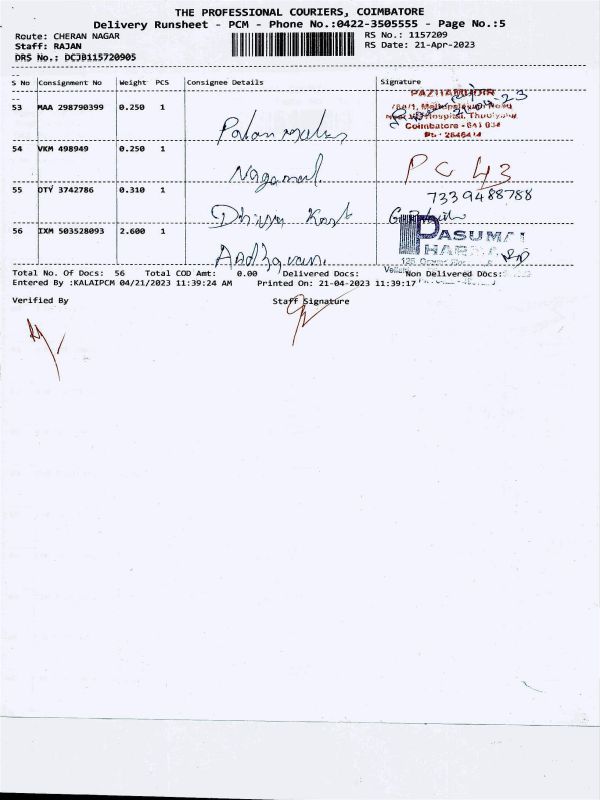 THE PROFESSIONAL COURIERS, COIMBATORE
Delivery Runsheet - PCM - Phone No.:0422-3505555 - Page No.:5
Route: CHERAN NAGAR
RS No.: 1157209
Staff: RAJAN
RS Date: 21-Apr-2023
DRS No.: DCJB115720905
S No Consignment No Weight PCS Consignee Details Signature
53 MAA 298790399 0.250 1
PAZHAMUDIR
Coimbatore - 641 034
54 VKM 498949 0.250 1 Nagamal PC 43
7339488788
55 OTY 3742786 0.310 1
56 IXM 503528093 2.600 1
PASUMAI
PHARMA
Total No. Of Docs: 56 Total COD Amt: 0.00 Delivered Docs: Non Delivered Docs:
Entered By :KALAIPCM 04/21/2023 11:39:24 AM Printed On: 21-04-2023 11:39:17
Verified By Staff Signature